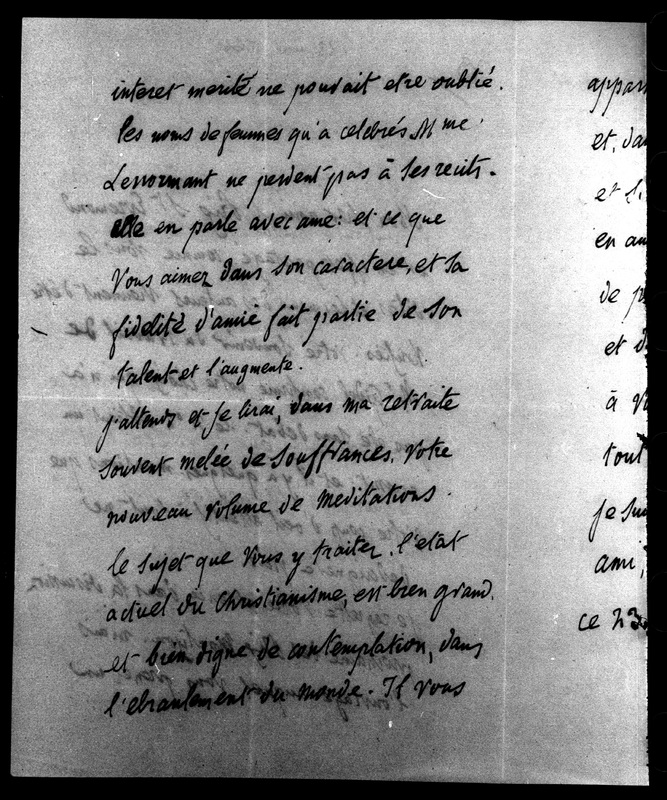 interet merité ne pouvait etre oublié.
les noms de femmes qu'a celebrés Mme.
Lenormant ne perdent pas à ses recits.
elle en parle avec ame: et ce que
Vous aimez dans son caractere, et sa
fidelité d'amie fait partie de son
talent et l'augmente.
j'attends et je lirai, dans ma retraite
souvent melée de souffrances, votre
nouveau volume de meditations.
le sujet que Vous y traitez, l'etat
actuel du Christianisme, est bien grand.
et bien digne de contemplation, dans
l'ebranlement du monde. Il vous
et, da
et
en
de
et
à
tout
je
ami,
ce 23